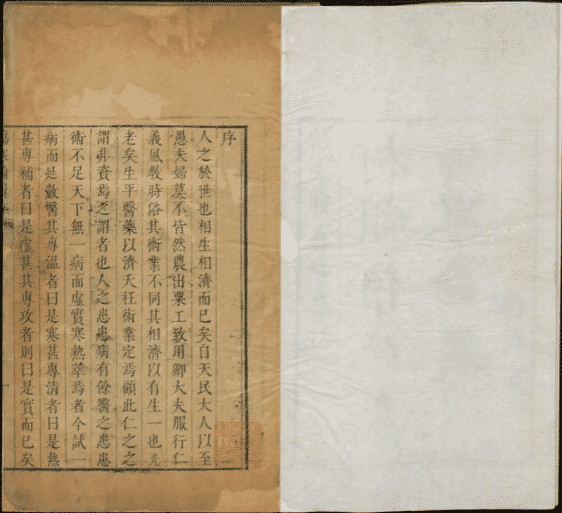 序
人之於世也相生相濟而已矣自天民大人以至
愚夫婦莫不皆然農出粟工致用卿大夫服行仁
義風教時俗其術業不同其相濟以有生一也先
老矣生平醫藥以濟夭枉術業定焉顧此仁之之
謂非資焉之謂者也人之患患病有餘醫之患患
術不足天下無一病而虛實寒熱萃焉者今試一
病而延數醫其專溫者曰是寒甚專清者曰是熱
甚專補者曰是虛甚其專攻者則曰是實而已矣